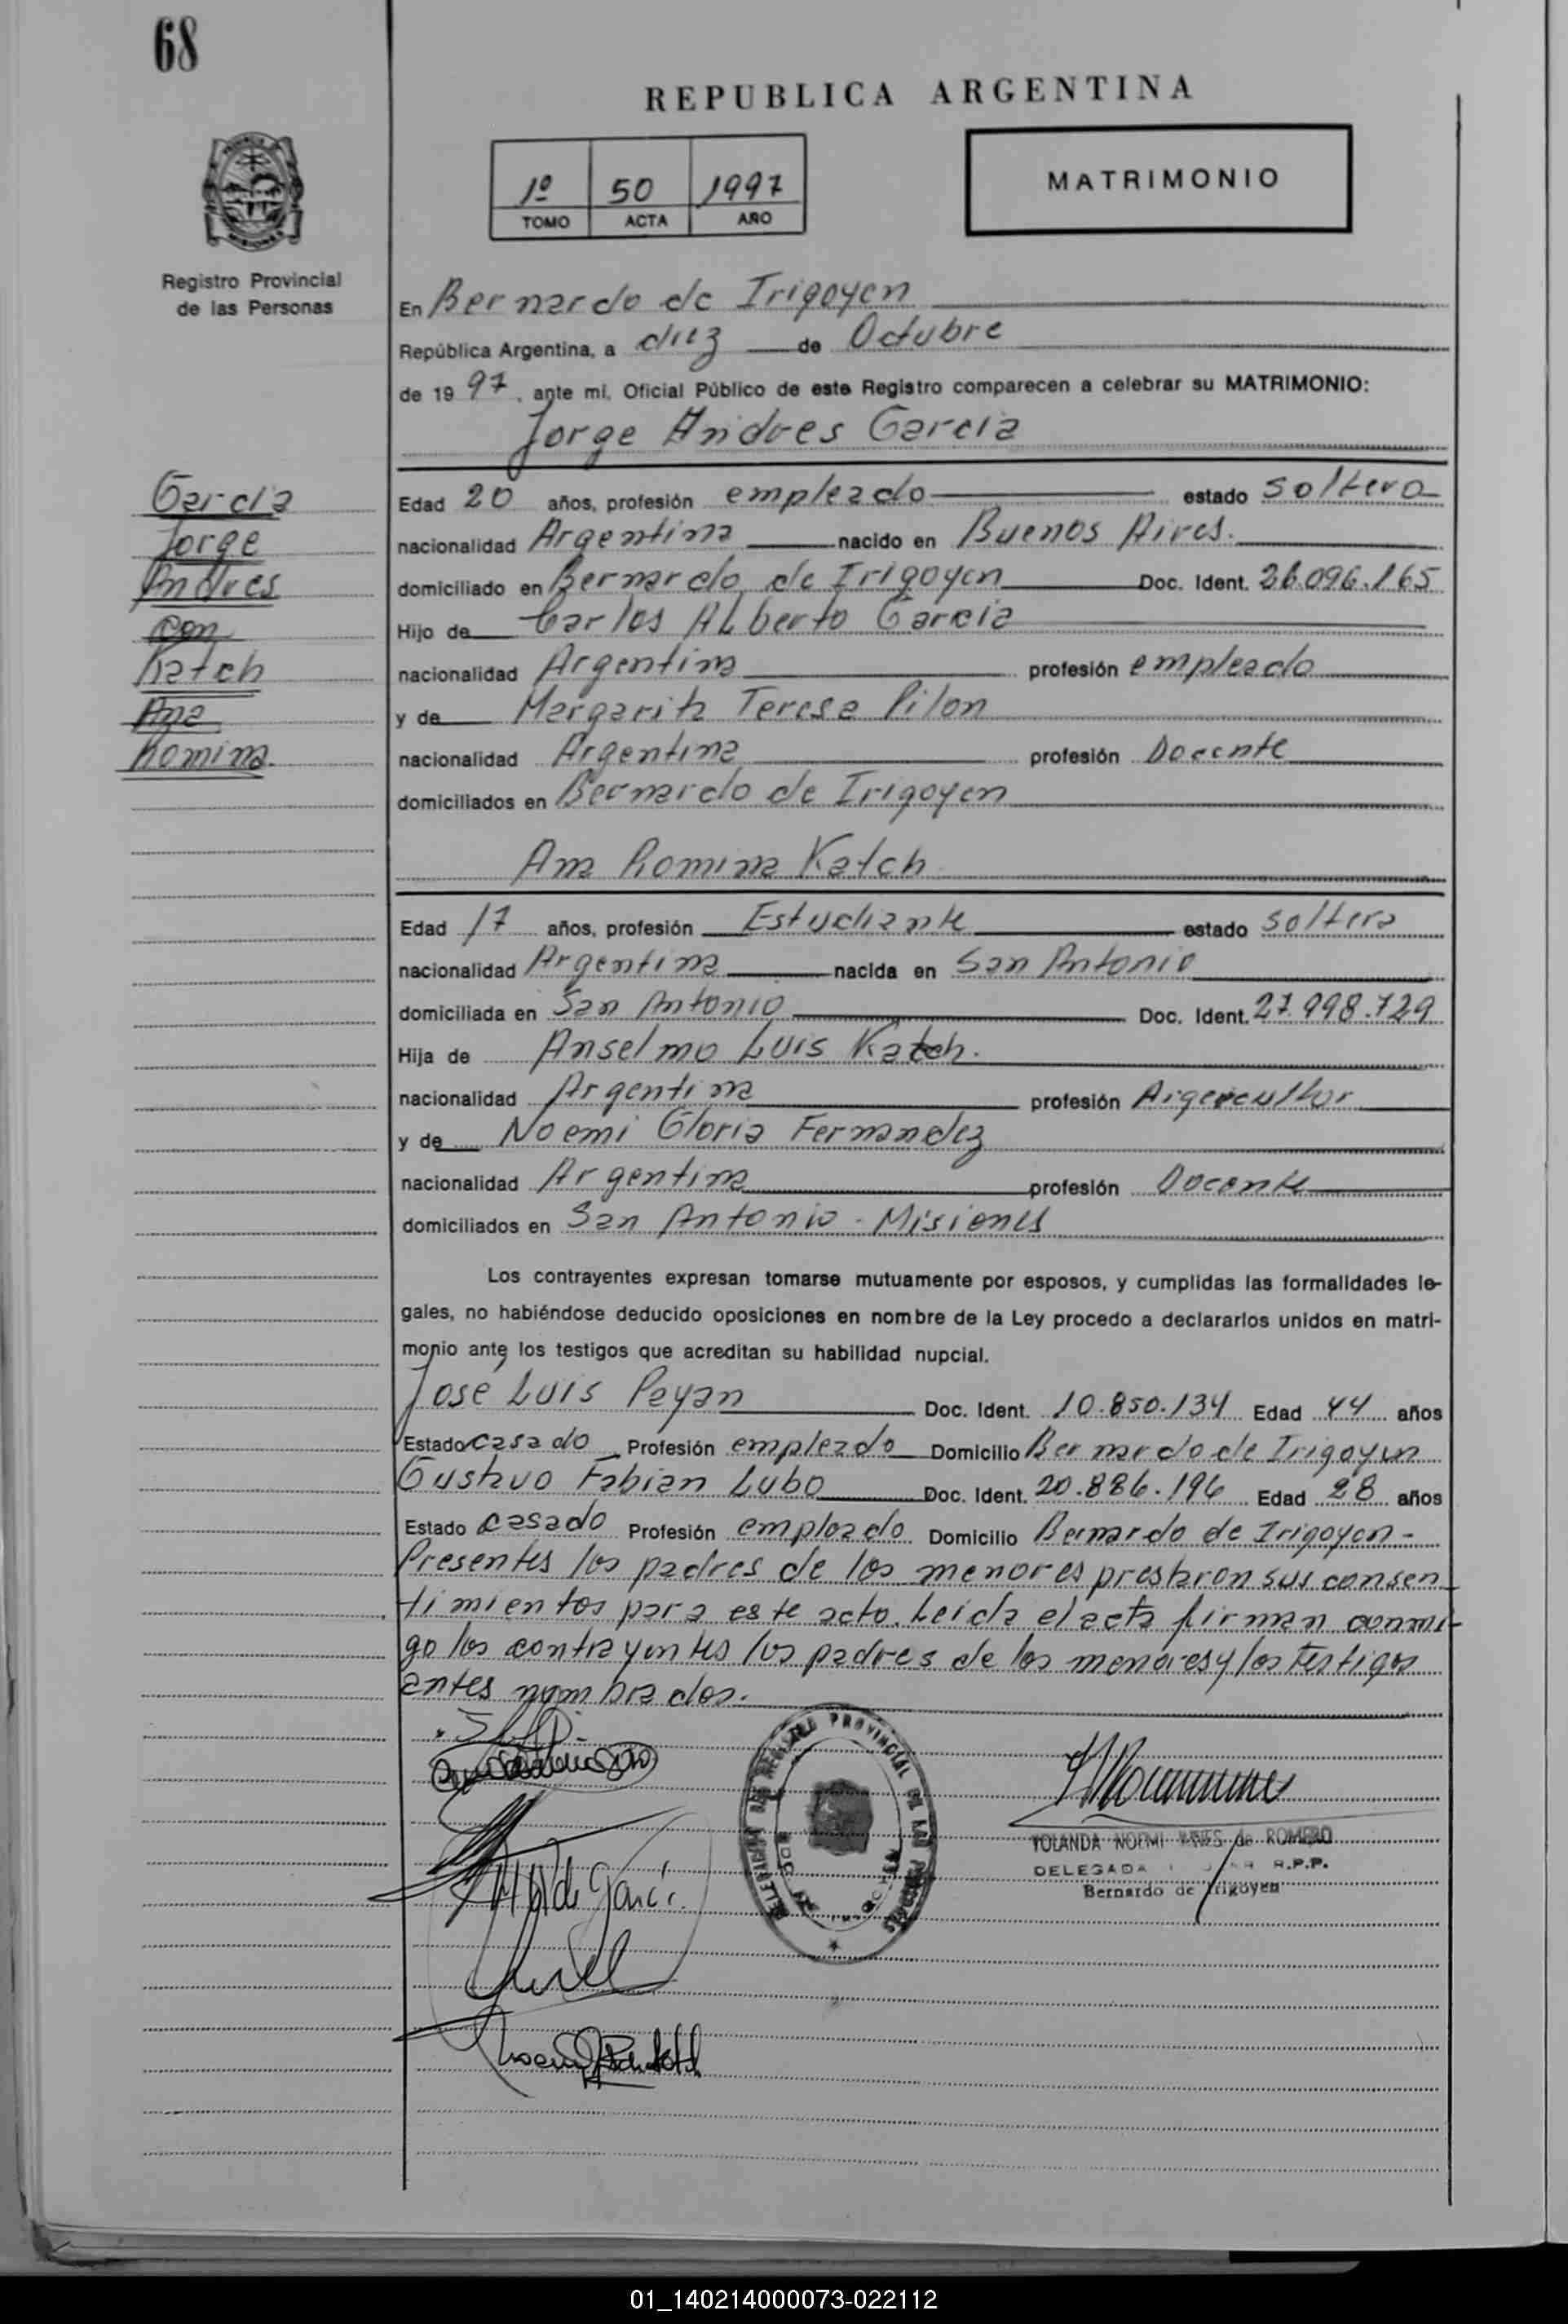 68
REPUBLICA ARGENTINA
1º 50 1997
TOMO ACTA AÑO
MATRIMONIO
Registro Provincial
de las Personas
En Bernardo de Irigoyen
República Argentina, a diez de Octubre
de 1997, ante mi, Oficial Público de este Registro comparecen a celebrar su MATRIMONIO:
Jorge Andres Garcia
Garcia
Jorge
Andres
con
Katch
Ana
Romina
Edad 20 años, profesión empleado estado soltero
nacionalidad Argentina nacido en Buenos Aires.
domiciliado en Bernardo de Irigoyen Doc. Ident. 26.096.165
Hijo de Carlos ALberto Garcia
nacionalidad Argentina profesión empleado
y de Margarita Teresa Pilon
nacionalidad Argentina profesión Docente
domiciliados en Bernardo de Irigoyen
Ana Romina Katch
Edad 17 años, profesión Estudiante estado soltera
nacionalidad Argentina nacida en San Antonio
domiciliada en San Antonio Doc. Ident. 27.998.729
Hija de Anselmo Luis Katch.
nacionalidad Argentina profesión
y de Noemi Gloria Fernandez
nacionalidad Argentina profesión Docente
domiciliados en San Antonio - Misiones
Los contrayentes expresan tomarse mutuamente por esposos, y cumplidas las formalidades le-
gales, no habiéndose deducido oposiciones en nombre de la Ley procedo a declararlos unidos en matri-
monio ante los testigos que acreditan su habilidad nupcial.
José Luis Peyan Doc. Ident. 10.850.134 Edad 44 años
Estado casado Profesión empleado Domicilio Bernardo de Irigoyen
Gustavo Fabian Lubo Doc. Ident. 20.886.196 Edad 28 años
Estado casado Profesión empleado Domicilio Bernardo de Irigoyen -
Presentes los padres de los menores prestaron sus consen-
timientos para este acto. Leida el acta firman conmi-
go los contrayentes los padres de los menores y los testigos
antes nombrados.
DELEGACION DEL REGISTRO PROVINCIAL DE LAS PERSONAS
YOLANDA NOEMI de ROMERO
DELEGADA R.P.P.
Bernardo de Irigoyen
de Garcia
01_140214000073-022112